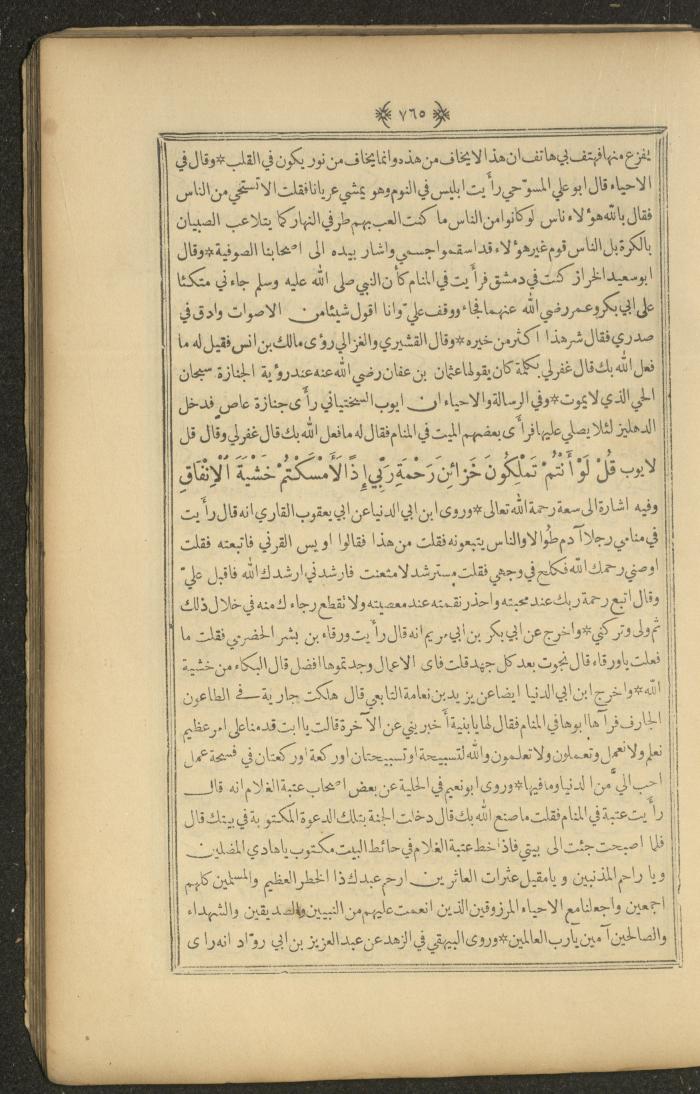 ٧٦٥
يفزع منها فهتف بي هاتف ان هذا لا يخاف من هذه وانما يخاف من نور يكون في القلب * وقال في
الاحياء قال ابو علي المسوحي رأيت ابليس في النوم وهو يمشي عريانا فقلت الا تستحي من الناس
فقال بالله هؤلاء ناس لو كانوا من الناس ما كنت العب بهم طرفي النهار كما يتلاعب الصبيان
بالكرة بل الناس قوم غير هؤلاء قد اسقموا جسمي واشار بيده الى اصحابنا الصوفية * وقال
ابو سعيد الخراز كنت في دمشق فرأيت في المنام كأن النبي صلى الله عليه وسلم جاءني متكئا
على ابي بكر وعمر رضي الله عنهما فجاء ووقف علي وانا اقول شيئا من الاصوات وادق في
صدري فقال شر هذا اكثر من خيره * وقال القشيري والغزالي رؤى مالك بن انس فقيل له ما
فعل الله بك قال غفر لي بكلمة كان يقولها عثمان بن عفان رضي الله عنه عند رؤية الجنازة سبحان
الحي الذي لا يموت * وفي الرسالة والاحياء ان ايوب السختياني رأى جنازة عاص فدخل
الدهليز لئلا يصلي عليها فرأى بعضهم الميت في المنام فقال له ما فعل الله بك قال غفر لي وقال قل
لايوب قُلْ لَوْ أَنْتُمْ تَمْلِكُونَ خَزَائِنَ رَحْمَةِ رَبِّي إِذًا لَأَمْسَكْتُمْ خَشْيَةَ الْإِنْفَاقِ
وفيه اشارة الى سعة رحمة الله تعالى * وروى ابن ابي الدنيا عن ابي يعقوب القاري انه قال رأيت
في منامي رجلا آدم طوالا والناس يتبعونه فقلت من هذا فقالوا اويس القرني فاتبعته فقلت
اوصني رحمك الله فكلح في وجهي فقلت مسترشد لا متعنت فارشدني ارشدك الله فاقبل عليّ
وقال اتبع رحمة ربك عند محبته واحذر نقمته عند معصيته ولا تقطع رجاءك منه في خلال ذلك
ثم ولى وتركني * واخرج عن ابي بكر بن ابي مريم انه قال رأيت ورقاء بن بشر الحضرمي فقلت ما
فعلت ياورقاء قال نجوت بعد كل جهد قلت فاى الاعمال وجدتموها افضل قال البكاء من خشية
الله * واخرج ابن ابي الدنيا ايضا عن يزيد بن نعامة التابعي قال هلكت جارية في الطاعون
الجارف فرآها ابوها في المنام فقال لها يابنية أخبريني عن الآخرة قالت ياابت قدمنا على امر عظيم
نعلم ولا نعمل وتعملون ولا تعلمون والله لتسبيحة او تسبيحتان او ركعة او ركعتان في فسحة عمل
احب اليّ من الدنيا وما فيها * وروى ابو نعيم في الحلية عن بعض اصحاب عتبة الغلام انه قال
رأيت عتبة في المنام فقلت ما صنع الله بك قال دخلت الجنة بتلك الدعوة المكتوبة في بيتك قال
فلما اصبحت جئت الى بيتي فاذا خط عتبة الغلام في حائط البيت مكتوب ياهادي المضلين
ويا راحم المذنبين ويامقيل عثرات العاثرين ارحم عبدك ذا الخطر العظيم والمسلمين كلهم
اجمعين واجعلنا مع الاحياء المرزوقين الذين انعمت عليهم من النبيين والصديقين والشهداء
والصالحين آمين يارب العالمين * وروى البيهقي في الزهد عن عبد العزيز بن ابي روّاد انه راى